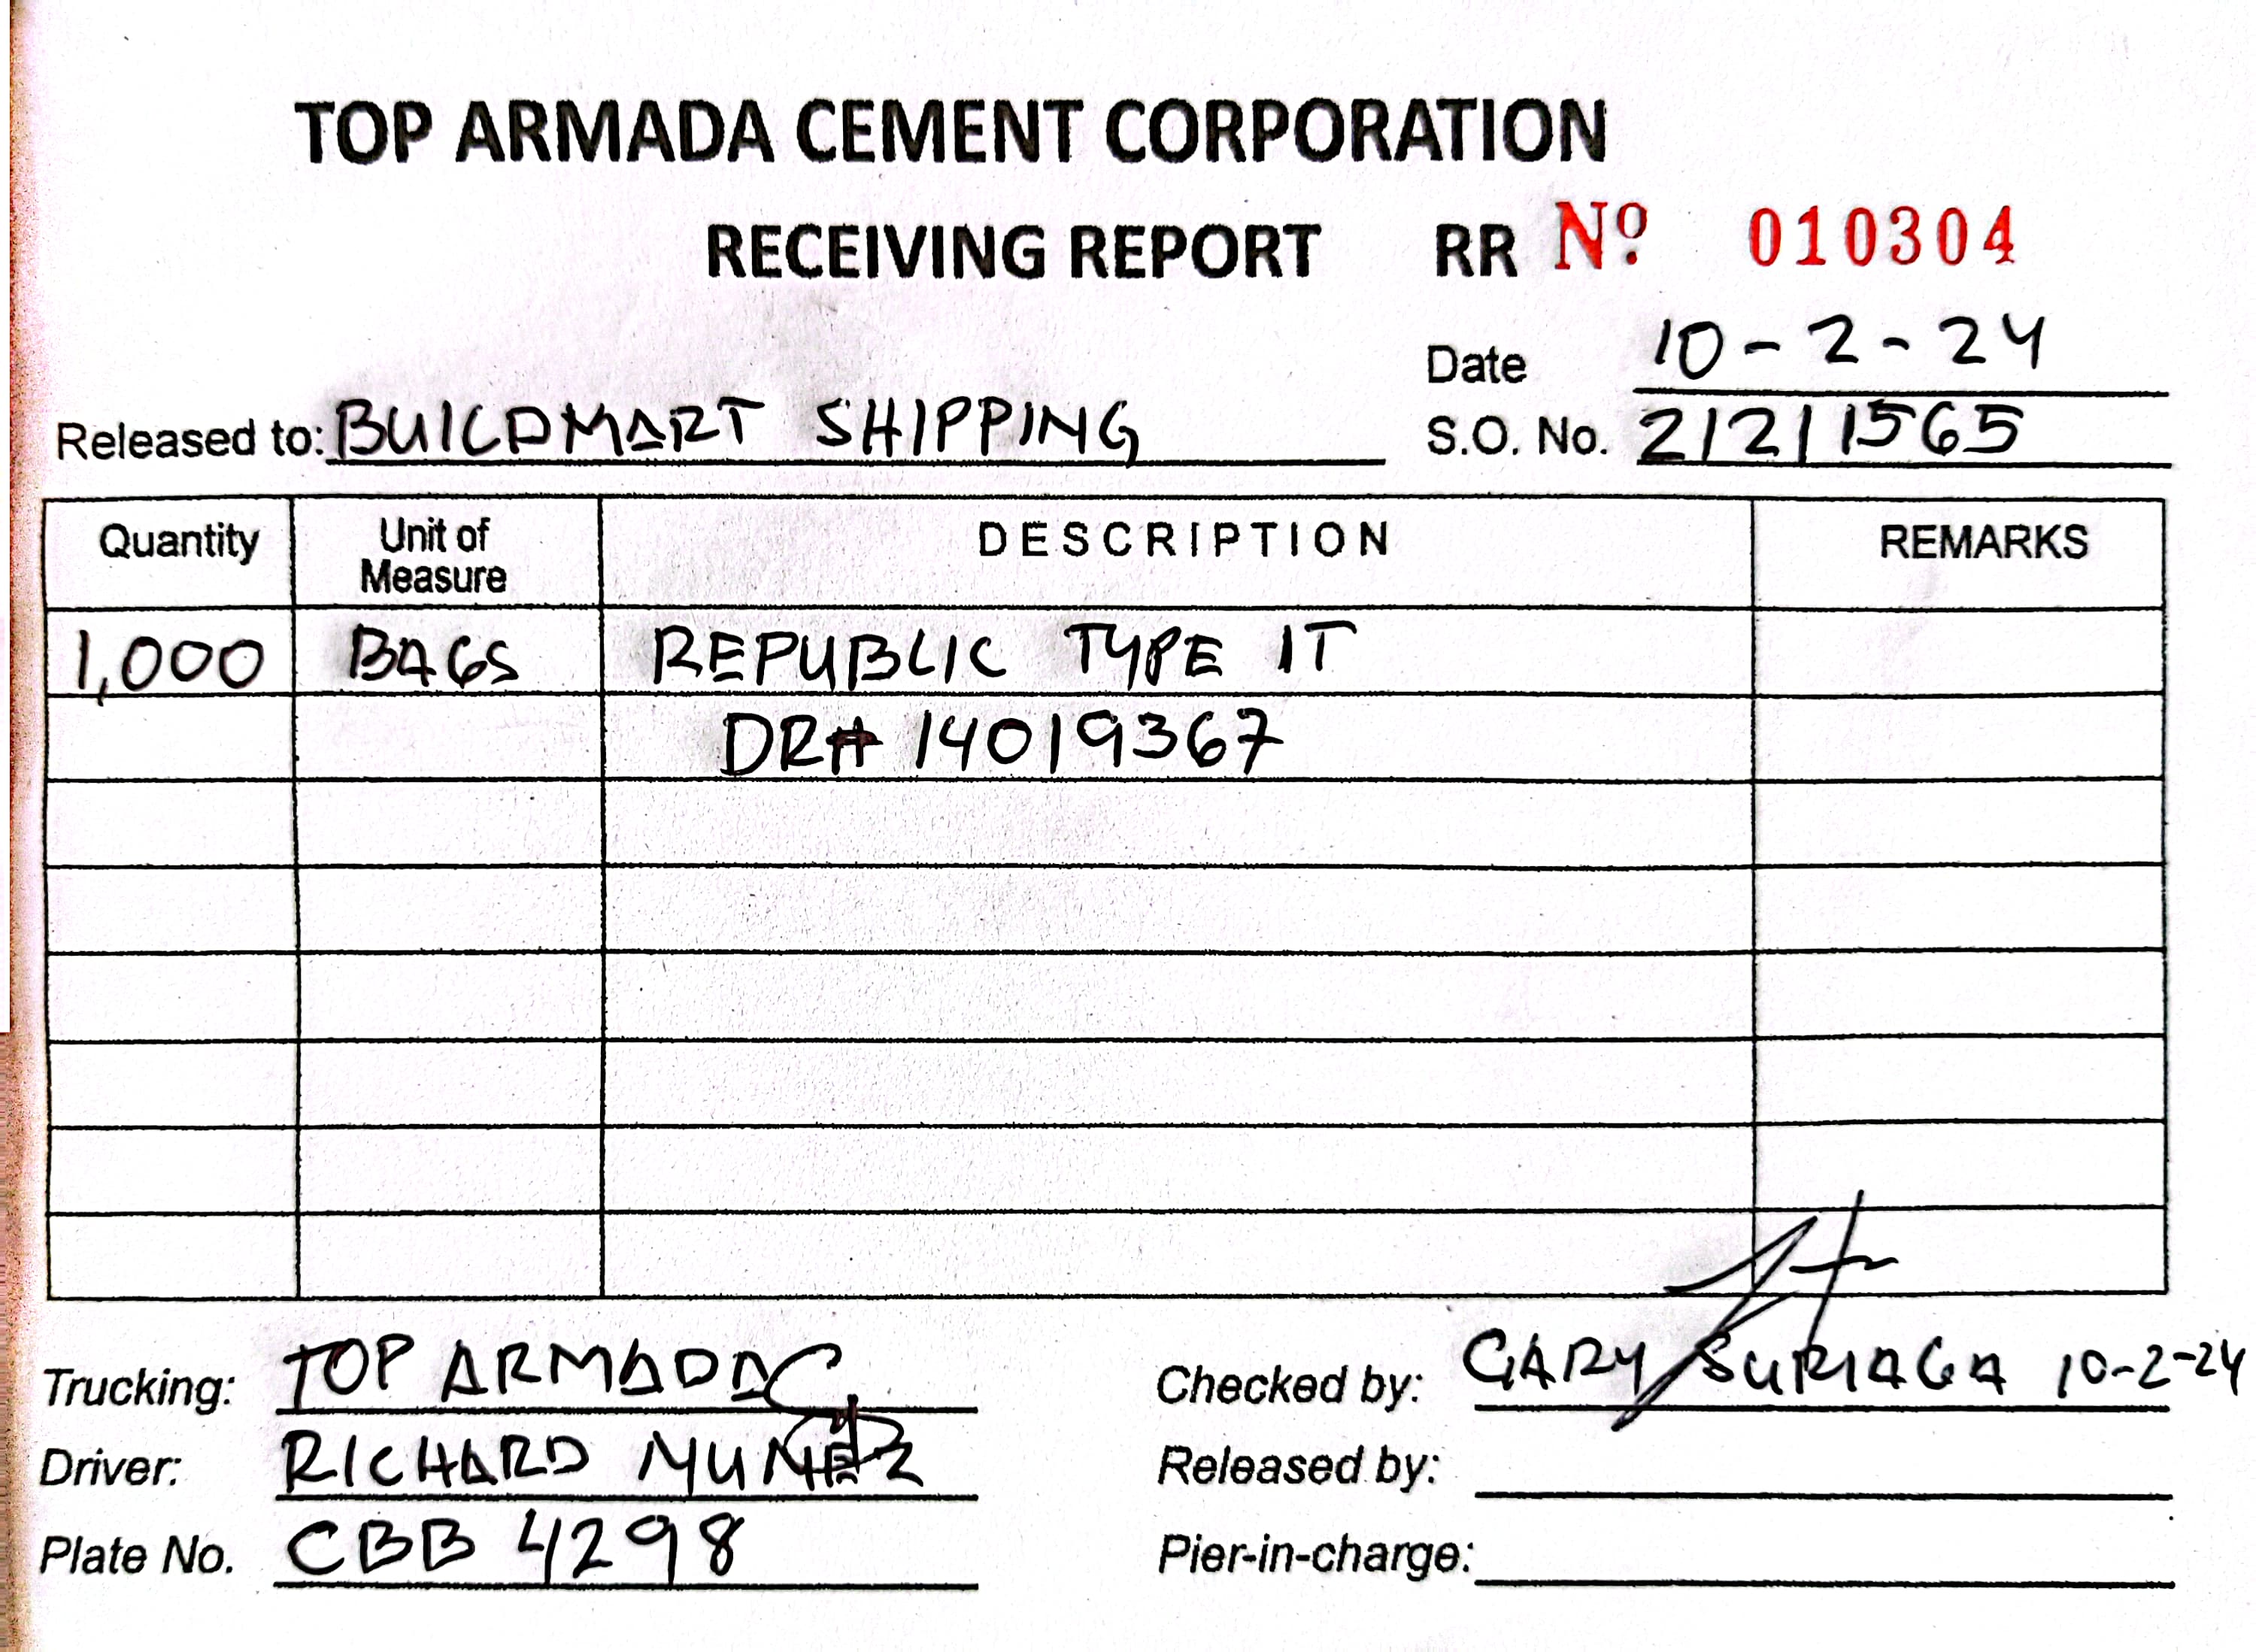 TOP ARMADA CEMENT CORPORATION
RECEIVING REPORT RR Nº 010304
Date 10-2-24
Released to: BUILDMART SHIPPING S.O. No. 21211565
Quantity Unit of Measure DESCRIPTION REMARKS
1,000 BAGS REPUBLIC TYPE 1T
DR# 14019367
Trucking: TOP ARMADA Checked by: GARY SURIAGA 10-2-24
Driver: RICHARD MUNEZ Released by:
Plate No. CBB 4298 Pier-in-charge: